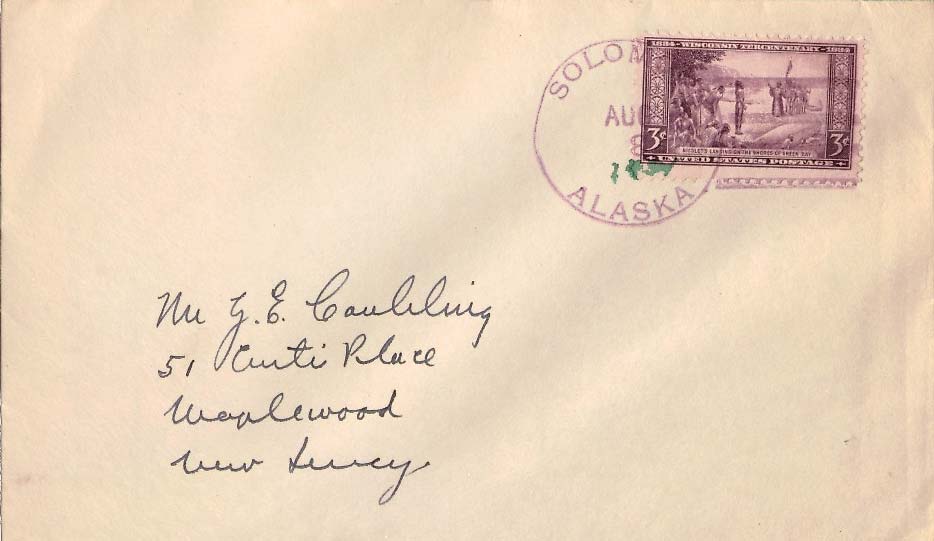 SOLOM
AUG
8
ALASKA
1634-WISCONSIN TERCENTENARY-1934
3¢ 3¢
NICOLET'S LANDING ON THE SHORES OF GREEN BAY
UNITED STATES POSTAGE
Mr G.E.
51 Place
Maplewood
New Jersey